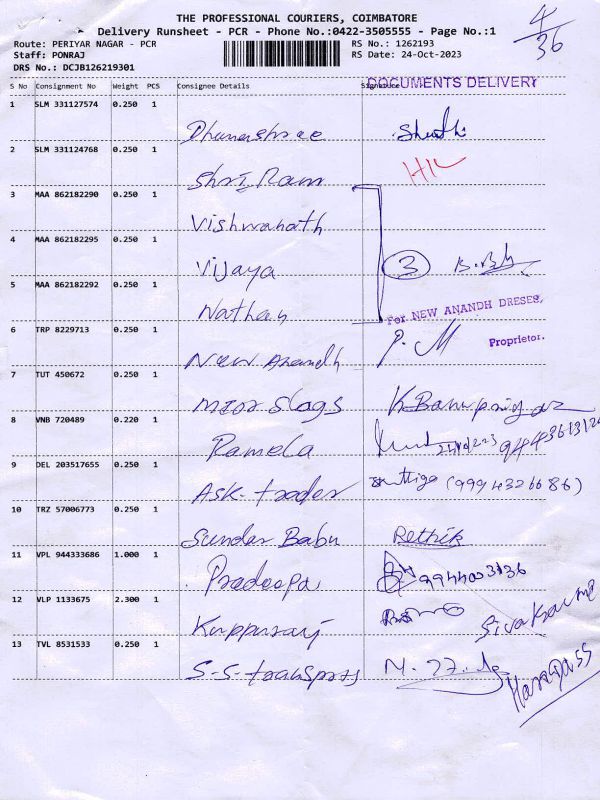 4/36
THE PROFESSIONAL COURIERS, COIMBATORE
Delivery Runsheet - PCR - Phone No.:0422-3505555 - Page No.:1
Route: PERIYAR NAGAR - PCR
RS No.: 1262193
Staff: PONRAJ
RS Date: 24-Oct-2023
DRS No.: DCJB126219301
DOCUMENTS DELIVERY
S No Consignment No Weight PCS Consignee Details Signature
1 SLM 331127574 0.250 1
2 SLM 331124768 0.250 1
Shri Ram
3 MAA 862182290 0.250 1
Vishwanath
4 MAA 862182295 0.250 1
Vijaya 3
5 MAA 862182292 0.250 1
Nathan
For NEW ANANDH DRESES,
6 TRP 8229713 0.250 1
Proprietor.
New Anandh
7 TUT 450672 0.250 1
8 VNB 720489 0.220 1
Ramela
9 DEL 203517655 0.250 1
(9994326686)
Ask-trader
10 TRZ 57006773 0.250 1
Sundar Babu Rethik
11 VPL 944333686 1.000 1
Pradeepa
12 VLP 1133675 2.300 1
Kuppuraj
13 TVL 8531533 0.250 1
S-S-transports